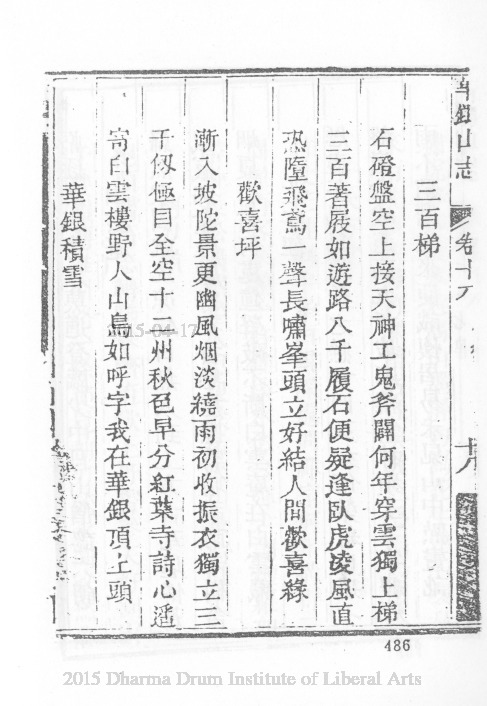 華銀山志
卷十六
十八
三百梯
石磴盤空上接天神工鬼斧闢何年穿雲獨上梯
三百著屐如遊路八千履石便疑逢臥虎凌風直
恐墮飛鳶一聲長嘯峯頭立好結人間歡喜緣
歡喜坪
漸入坡陀景更幽風烟淡繞雨初收振衣獨立三
千仭極目全空十二州秋色早分紅葉寺詩心遥
寄白雲樓野人山鳥如呼字我在華銀頂上頭
華銀積雪
2015-04-17
486
2015 Dharma Drum Institute of Liberal Arts